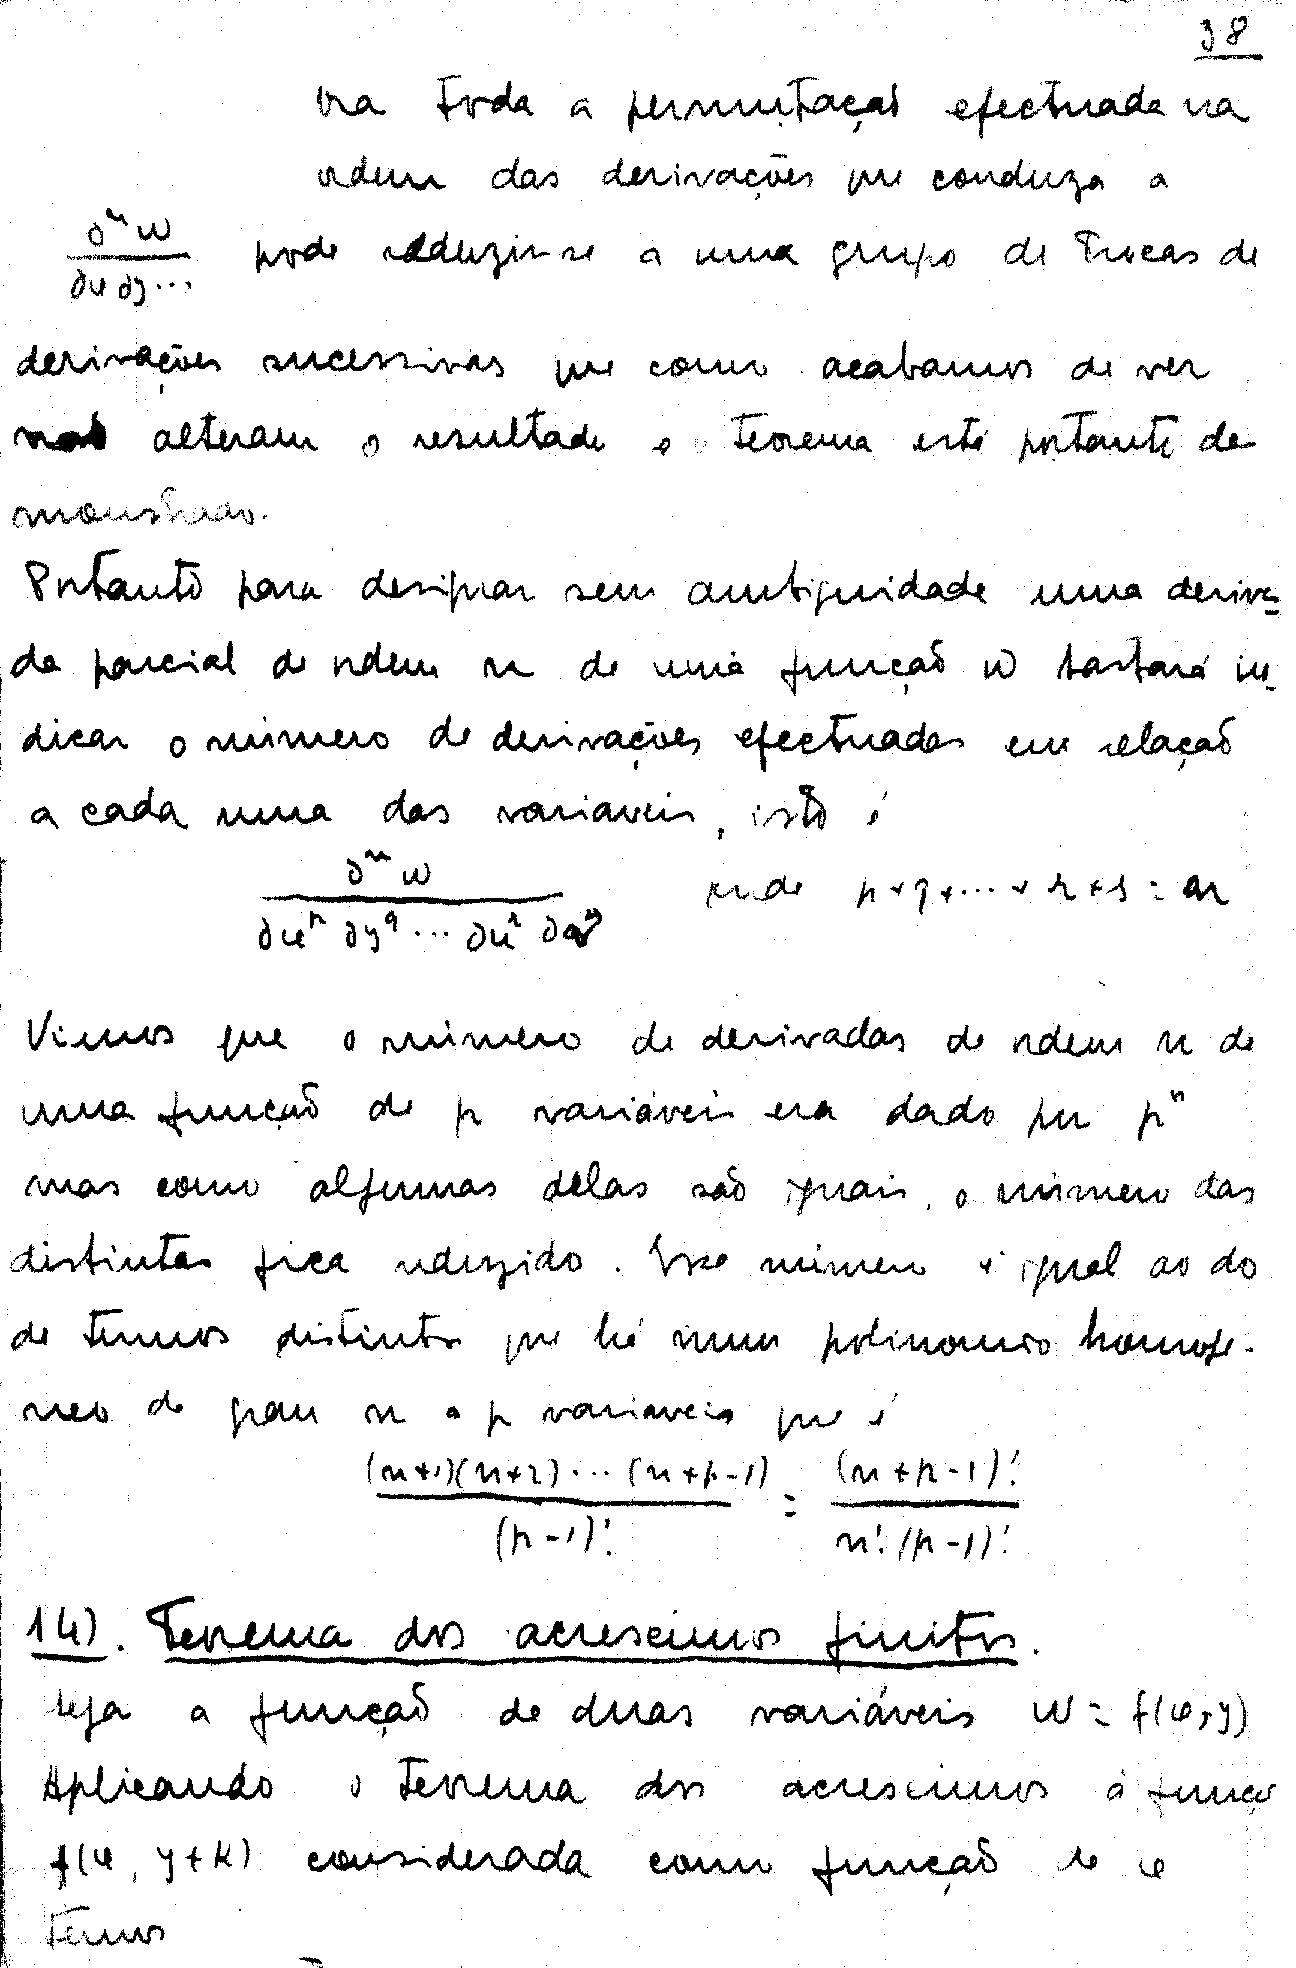 38
ora toda a permutação efectuada na
ordem das derivações que conduza a
∂ⁿw / ∂x∂y... pode reduzir-se a uma grupo de trocas de
derivações sucessivas que como acabamos de ver
não alteram o resultado o teorema está portanto de
monstrado.
Portanto para designar sem ambiguidade uma deriva-
da parcial de ordem n de uma função w bastará in-
dicar o número de derivações efectuadas em relação
a cada uma das variaveis, isto é
∂ⁿw / ∂xᵖ ∂y^q ... ∂uʳ ∂vˢ onde p+q+...+r+s=n
Vimos que o número de derivadas de ordem n de
uma função de p variáveis era dado por pⁿ
mas como algumas delas são iguais, o número das
distintas fica reduzido. Esse número é igual ao do
de termos distintos que há num polinomio homogé-
neo de grau n a p variaveis que é
(n+1)(n+2)...(n+p-1) / (p-1)! = (n+p-1)! / n!(p-1)!
14). Teorema dos acrescimos finitos.
Seja a função de duas variáveis w=f(x,y)
Aplicando o teorema dos acrescimos á função
f(x, y+k) considerada como função de x
temos